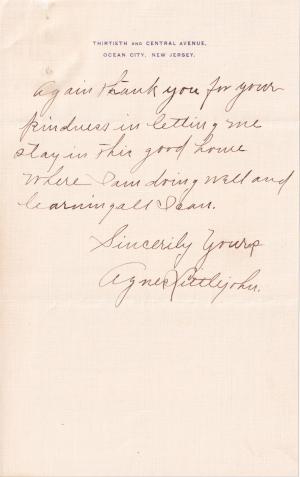 THIRTIETH AND CENTRAL AVENUE,
OCEAN CITY, NEW JERSEY.
Again thank you for your
kindness in letting me
stay in this good home
where I am doing well and
learning all I can.
Sincerily Yours
Agnes Littlejohn.